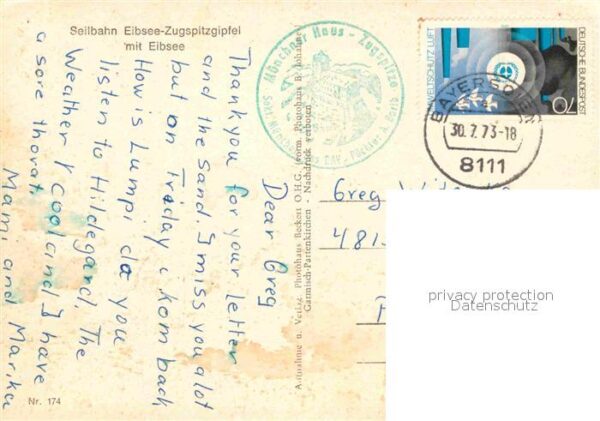 Seilbahn Eibsee-Zugspitzgipfel
mit Eibsee
Dear Greg
Thankyou for your letter
and the sand. I miss you alot
but on Friday i kom back
How is Lumpi do you
listen to Hildegand. The
Weather is Cool and I have
a sore thorat
Mami and Marika
Nr. 174
Aufnahme u. Verlag: Photohaus Beckert O.H.G. (vorm. Photohaus B. Johannes)
Garmisch-Partenkirchen - Nachdruck verboten
Münchner Haus - Zugspitze
UMWELTSCHUTZ LUFT
DEUTSCHE BUNDESPOST
70
30.7.73-18
8111
Greg
481
privacy protection
Datenschutz